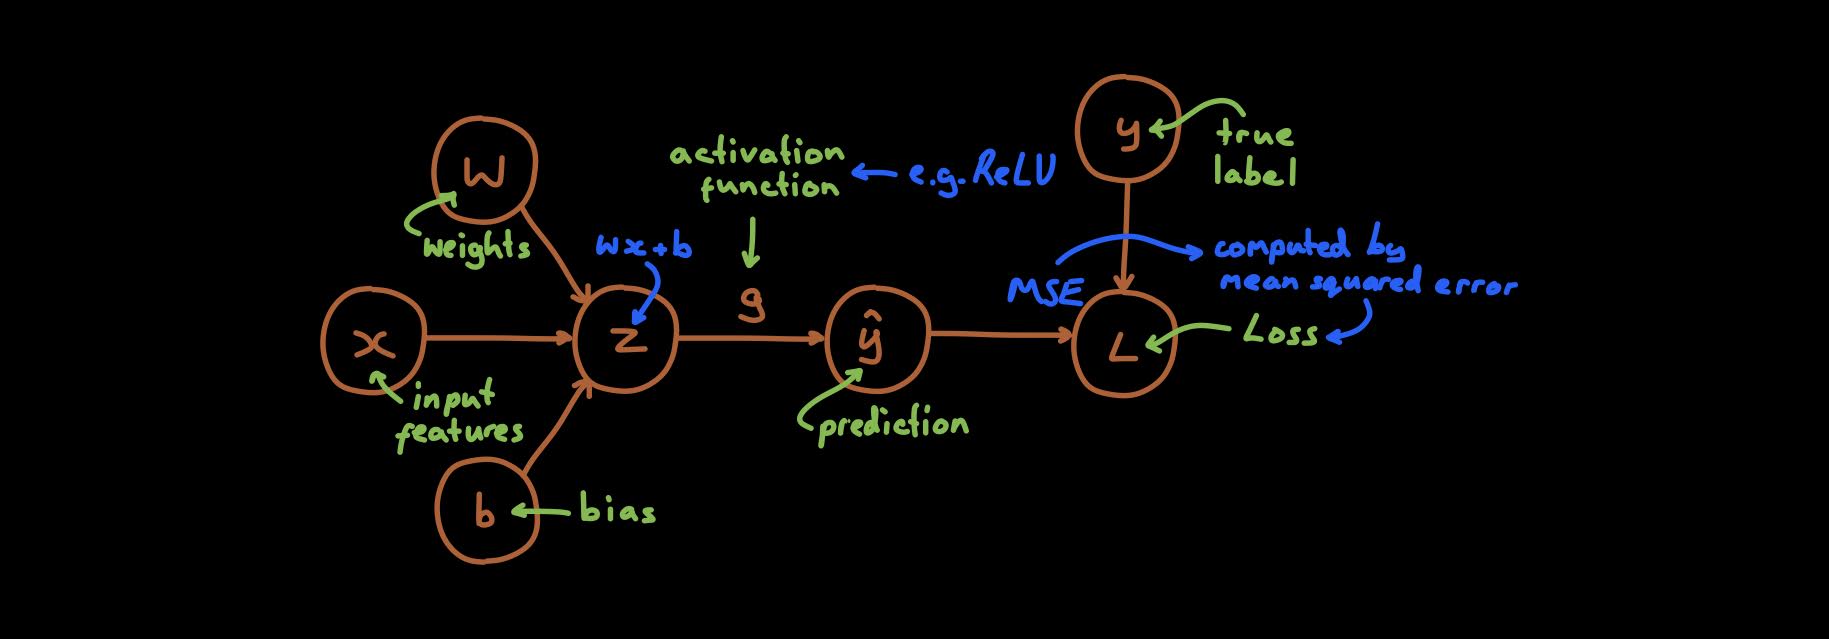 w
weights
x
input
features
b
bias
wx+b
z
activation
function
e.g. ReLU
g
ŷ
prediction
y
true
label
MSE
computed by
mean squared error
L
Loss